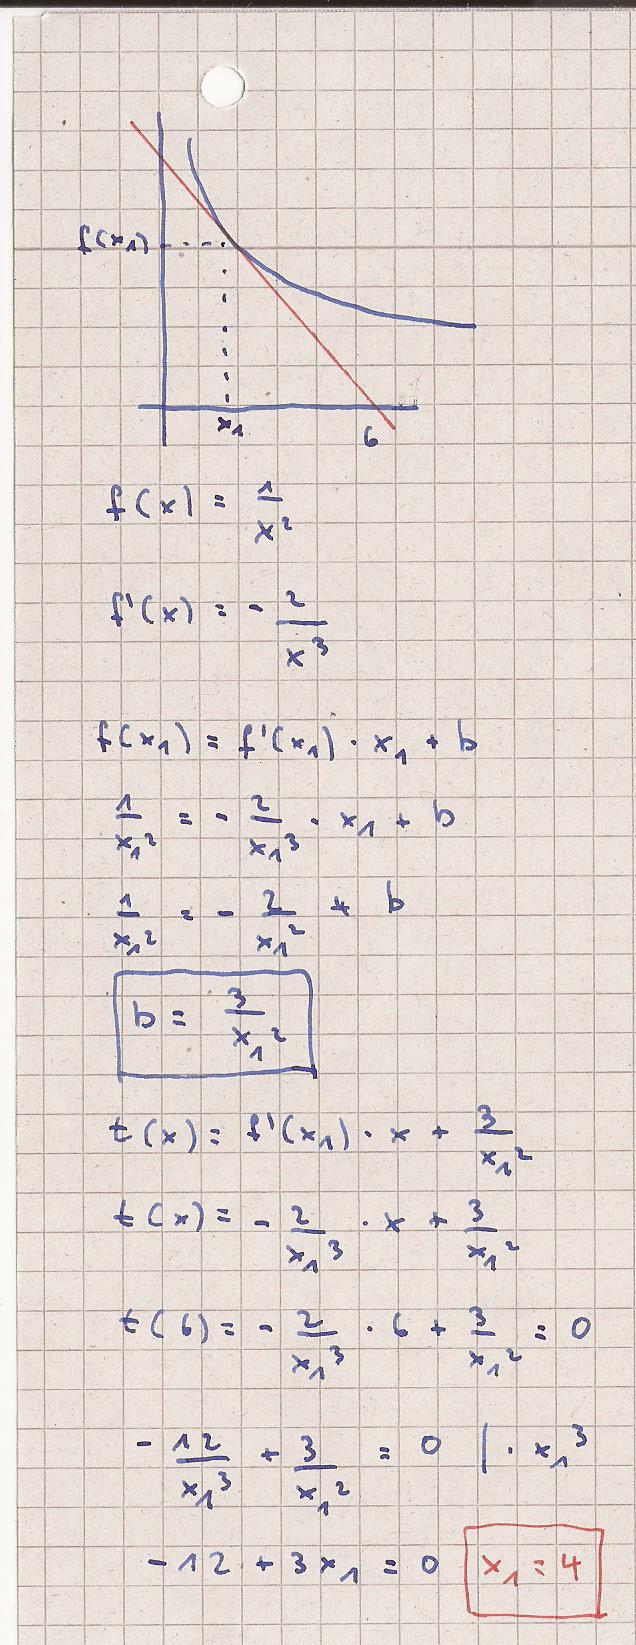 f(x₁)
x₁
6
f(x) = 1/x²
f'(x) = - 2/x³
f(x₁) = f'(x₁) · x₁ + b
1/x₁² = - 2/x₁³ · x₁ + b
1/x₁² = - 2/x₁² + b
b = 3/x₁²
t(x) = f'(x₁) · x + 3/x₁²
t(x) = - 2/x₁³ · x + 3/x₁²
t(6) = - 2/x₁³ · 6 + 3/x₁² = 0
- 12/x₁³ + 3/x₁² = 0 | · x₁³
-12 + 3x₁ = 0 x₁ = 4